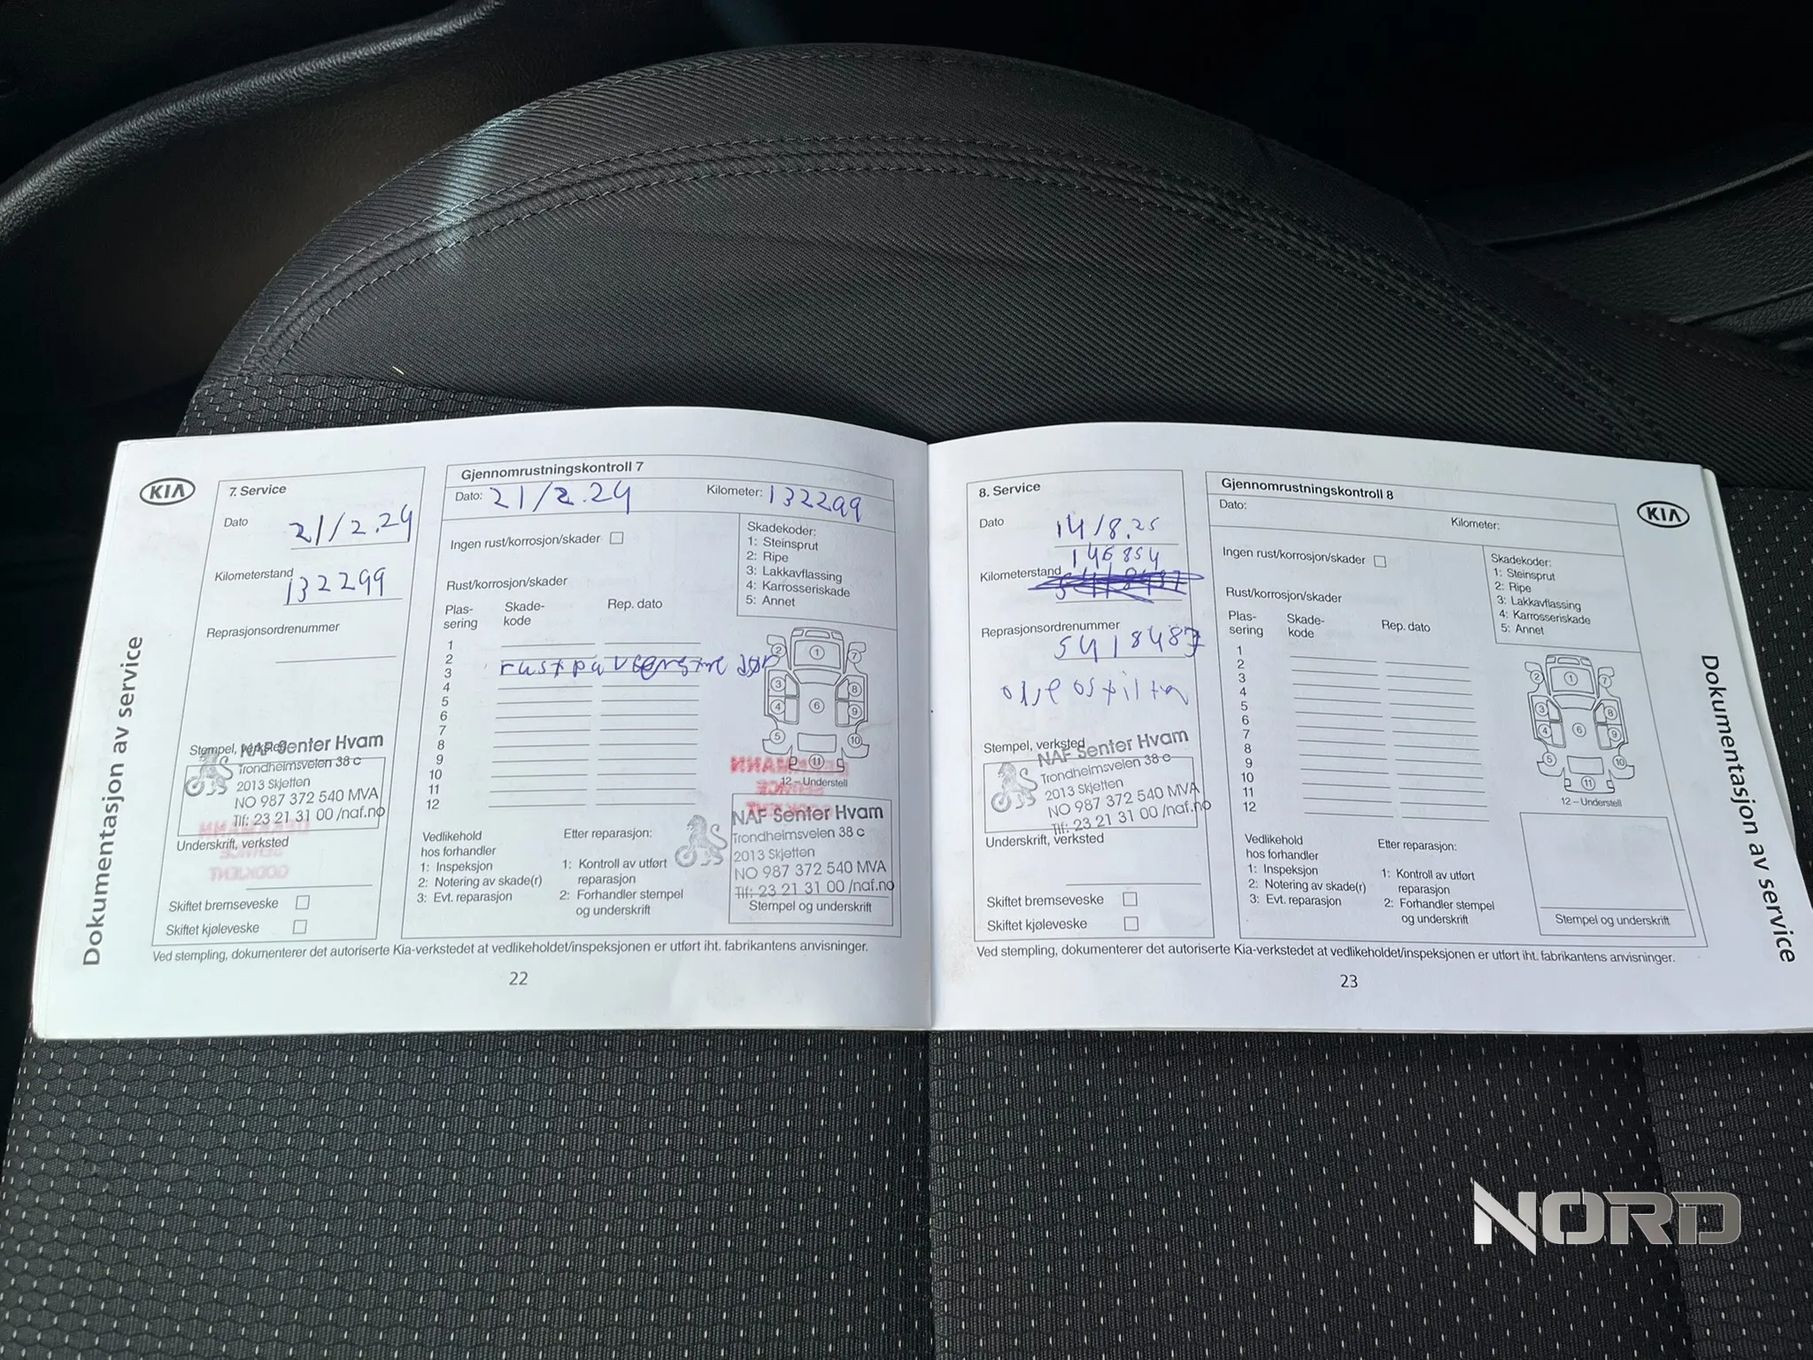 KIA
Dokumentasjon av service
7. Service
Dato
21/2.24
Kilometerstand
132299
Reprasjonsordrenummer
Stempel, verksted
NAF Senter Hvam
Trondheimsveien 38 c
2013 Skjetten
NO 987 372 540 MVA
Tlf: 23 21 31 00 /naf.no
Underskrift, verksted
Skiftet bremseveske
Skiftet kjøleveske
Gjennomrustningskontroll 7
Dato: 21/2.24
Kilometer: 132299
Ingen rust/korrosjon/skader
Skadekoder:
1: Steinsprut
2: Ripe
3: Lakkavflassing
4: Karrosseriskade
5: Annet
Rust/korrosjon/skader
Plas-
sering
Skade-
kode
Rep. dato
1
2
3
rust på venstre dør
4
5
6
7
8
9
10
11
12
1
2
3
4
5
6
7
8
9
10
11
12 – Understell
NAF Senter Hvam
Trondheimsveien 38 c
2013 Skjetten
NO 987 372 540 MVA
Tlf: 23 21 31 00 /naf.no
Stempel og underskrift
Vedlikehold
hos forhandler
1: Inspeksjon
2: Notering av skade(r)
3: Evt. reparasjon
Etter reparasjon:
1: Kontroll av utført
reparasjon
2: Forhandler stempel
og underskrift
Ved stempling, dokumenterer det autoriserte Kia-verkstedet at vedlikeholdet/inspeksjonen er utført iht. fabrikantens anvisninger.
22
8. Service
Dato
14/8.25
146854
Kilometerstand
Reprasjonsordrenummer
5418487
Stempel, verksted
NAF Senter Hvam
Trondheimsveien 38 c
2013 Skjetten
NO 987 372 540 MVA
Tlf: 23 21 31 00 /naf.no
Underskrift, verksted
Skiftet bremseveske
Skiftet kjøleveske
Gjennomrustningskontroll 8
Dato:
Kilometer:
Ingen rust/korrosjon/skader
Skadekoder:
1: Steinsprut
2: Ripe
3: Lakkavflassing
4: Karrosseriskade
5: Annet
Rust/korrosjon/skader
Plas-
sering
Skade-
kode
Rep. dato
1
2
3
4
5
6
7
8
9
10
11
12
1
2
3
4
5
6
7
8
9
10
11
12 – Understell
Vedlikehold
hos forhandler
1: Inspeksjon
2: Notering av skade(r)
3: Evt. reparasjon
Etter reparasjon:
1: Kontroll av utført
reparasjon
2: Forhandler stempel
og underskrift
Stempel og underskrift
Ved stempling, dokumenterer det autoriserte Kia-verkstedet at vedlikeholdet/inspeksjonen er utført iht. fabrikantens anvisninger.
23
KIA
Dokumentasjon av service
NORD